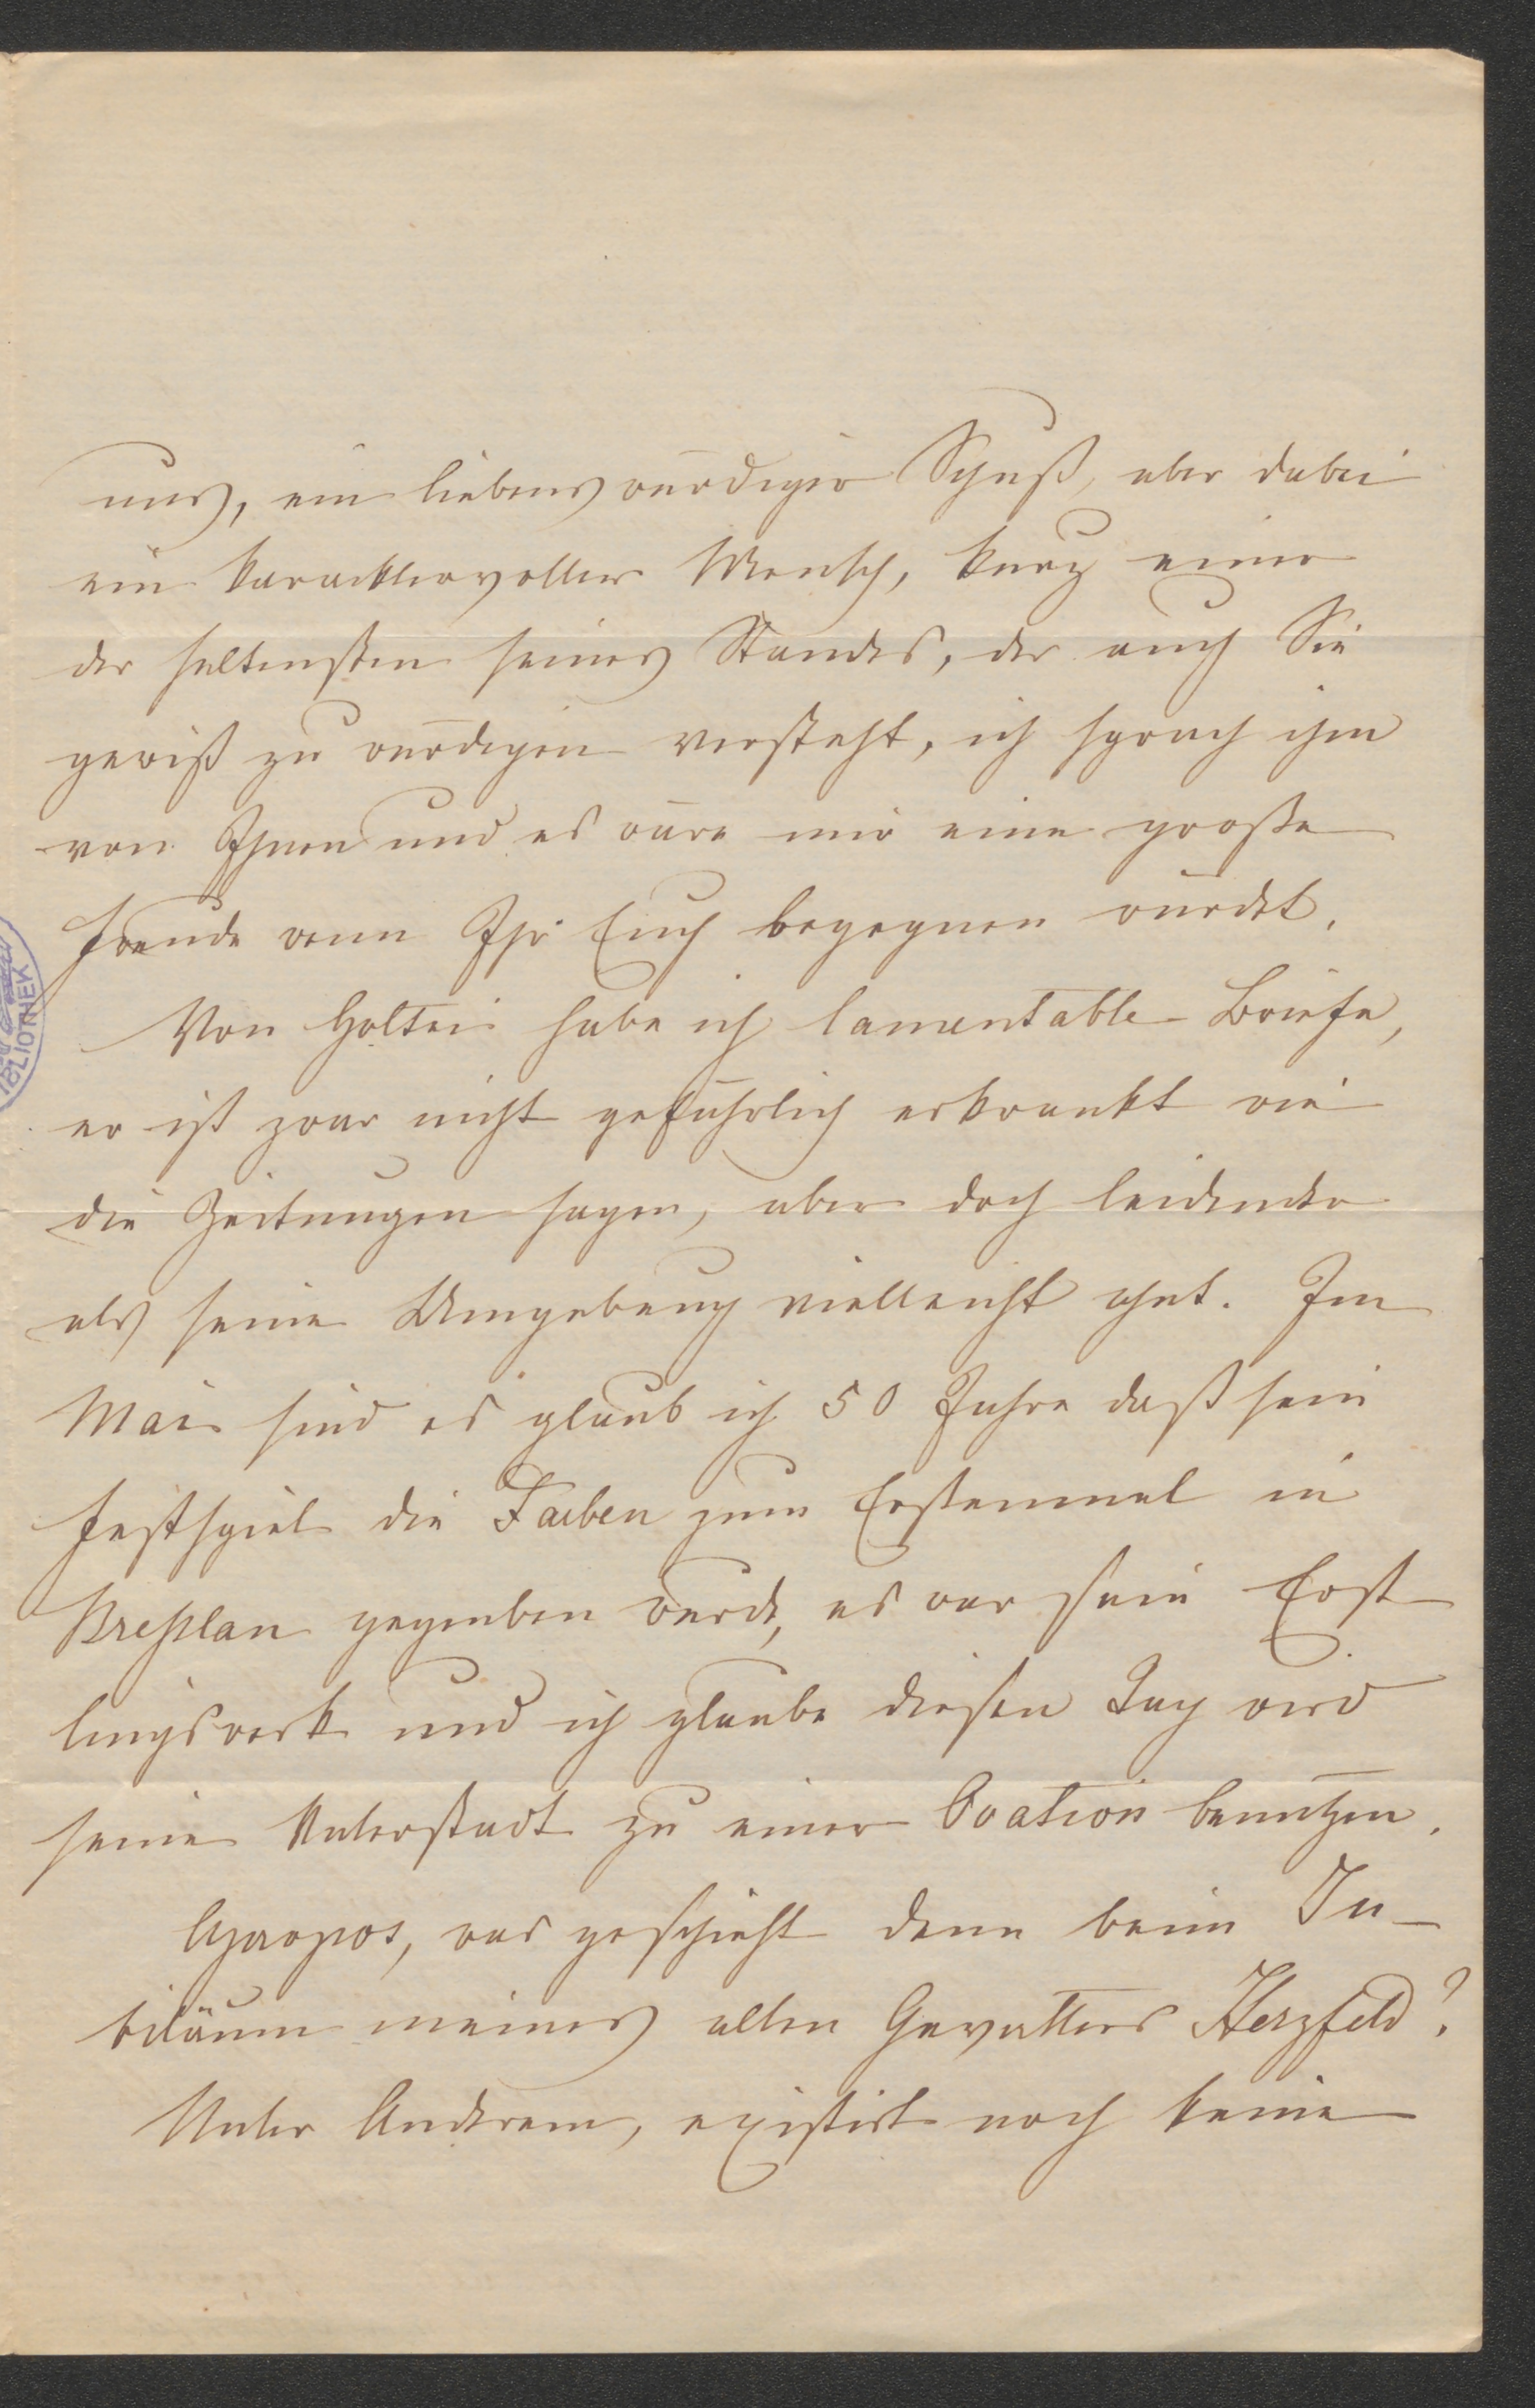 uns, ein liebenswürdiger Schuß, aber dabei
ein karacktervoller Mensch, kurz einer
der seltensten seines Standes, der auch Sie
gewiß zu würdigen versteht, ich sprach ihm
von Ihnen und es wäre mir eine große
Freude wenn Ihr Euch begegnen würdet.
Von Holtei habe ich lamentable Briefe,
er ist zwar nicht gefährlich erkrankt wie
die Zeitungen sagen, aber doch leidender
als seine Umgebung vielleicht ahnt. Im
Mai sind es glaub ich 50 Jahre daß sein
Festspiel die Farben zum Erstenmal in
Breßlau gegenben wurde, es war sein Erst
lingswerk und ich glaube diesen Tag wird
seine Vaterstadt zu einer Ovation benutzen.
Apropos, was geschieht denn beim Ju-
biläum meines alten Gevatters Herzfeld?
Unter Anderem, existirt noch keine
BIBLIOTHEK